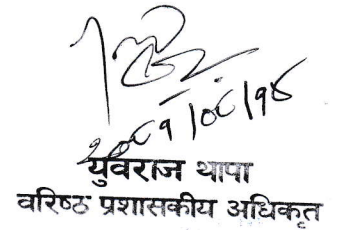 २०८१/०८/१४
युवराज थापा
वरिष्ठ प्रशासकीय अधिकृत